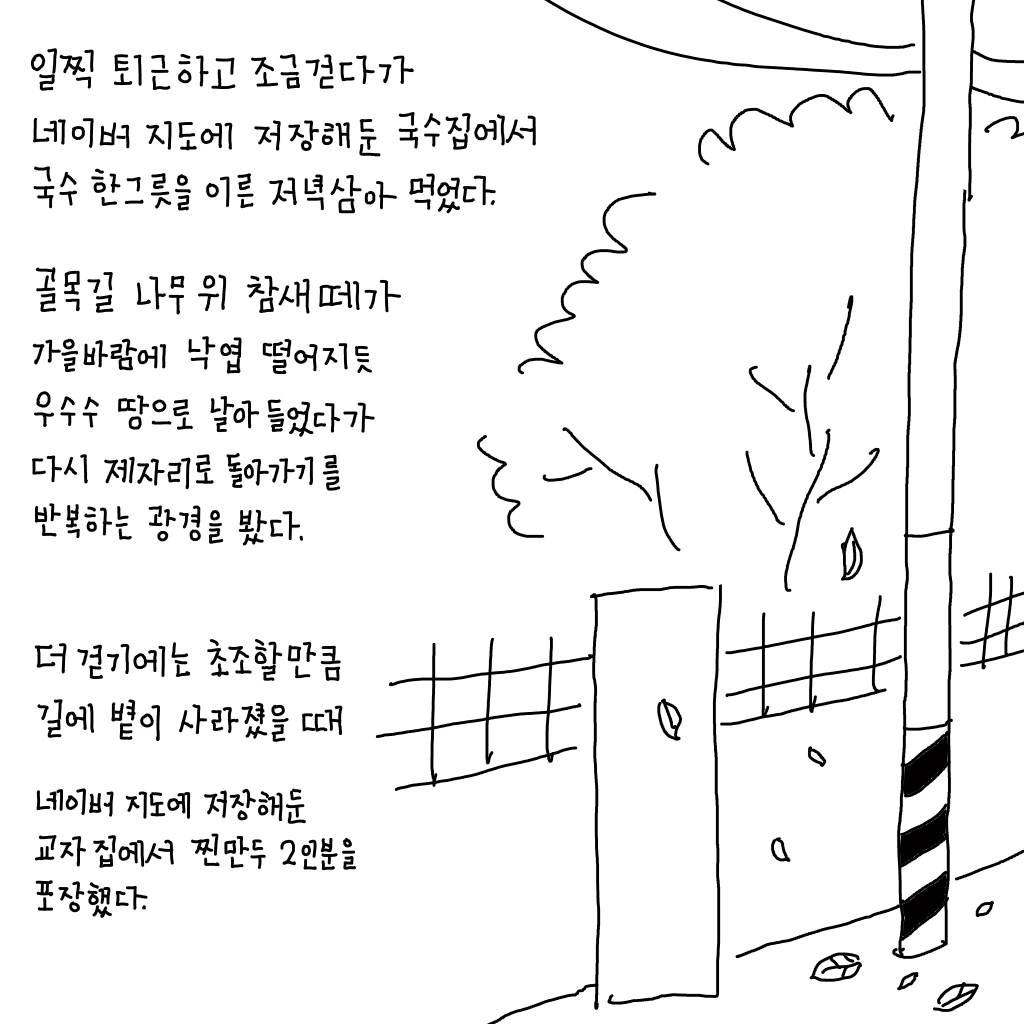 일찍 퇴근하고 조금걷다가
네이버 지도에 저장해둔 국수집에서
국수 한그릇을 이른 저녁삼아 먹었다.
골목길 나무 위 참새떼가
가을바람에 낙엽 떨어지듯
우수수 땅으로 날아들었다가
다시 제자리로 돌아가기를
반복하는 광경을 봤다.
더 걷기에는 초조할만큼
길에 볕이 사라졌을 때
네이버 지도에 저장해둔
교자집에서 찐만두 2인분을
포장했다.